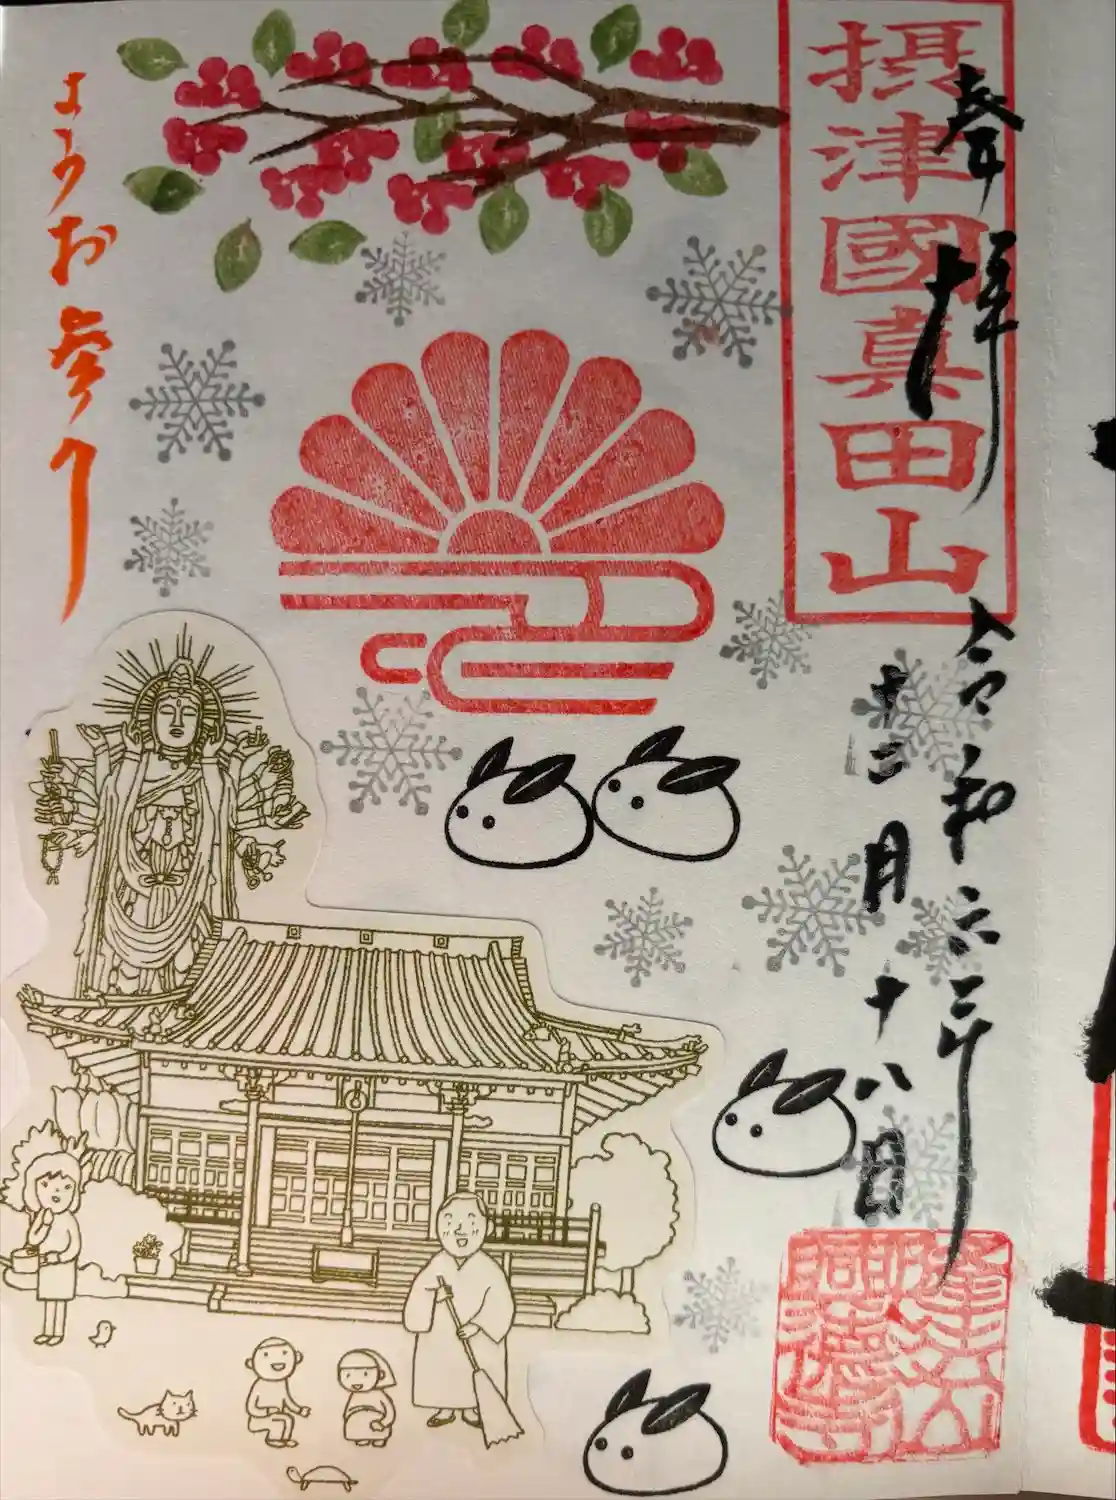 奉拝
摂津國真田山
令和六年
十二月十八日
ようお参り